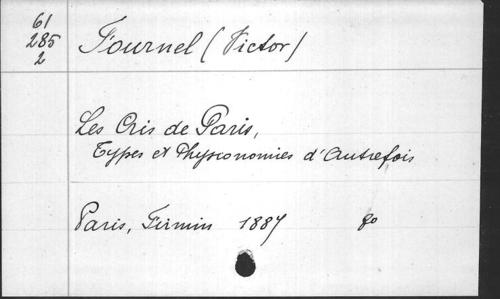 61
285
2
Fournel (Victor)
Les Cris de Paris,
Types et Physionomies d'Autrefois
Paris, Firmin 1887 8o